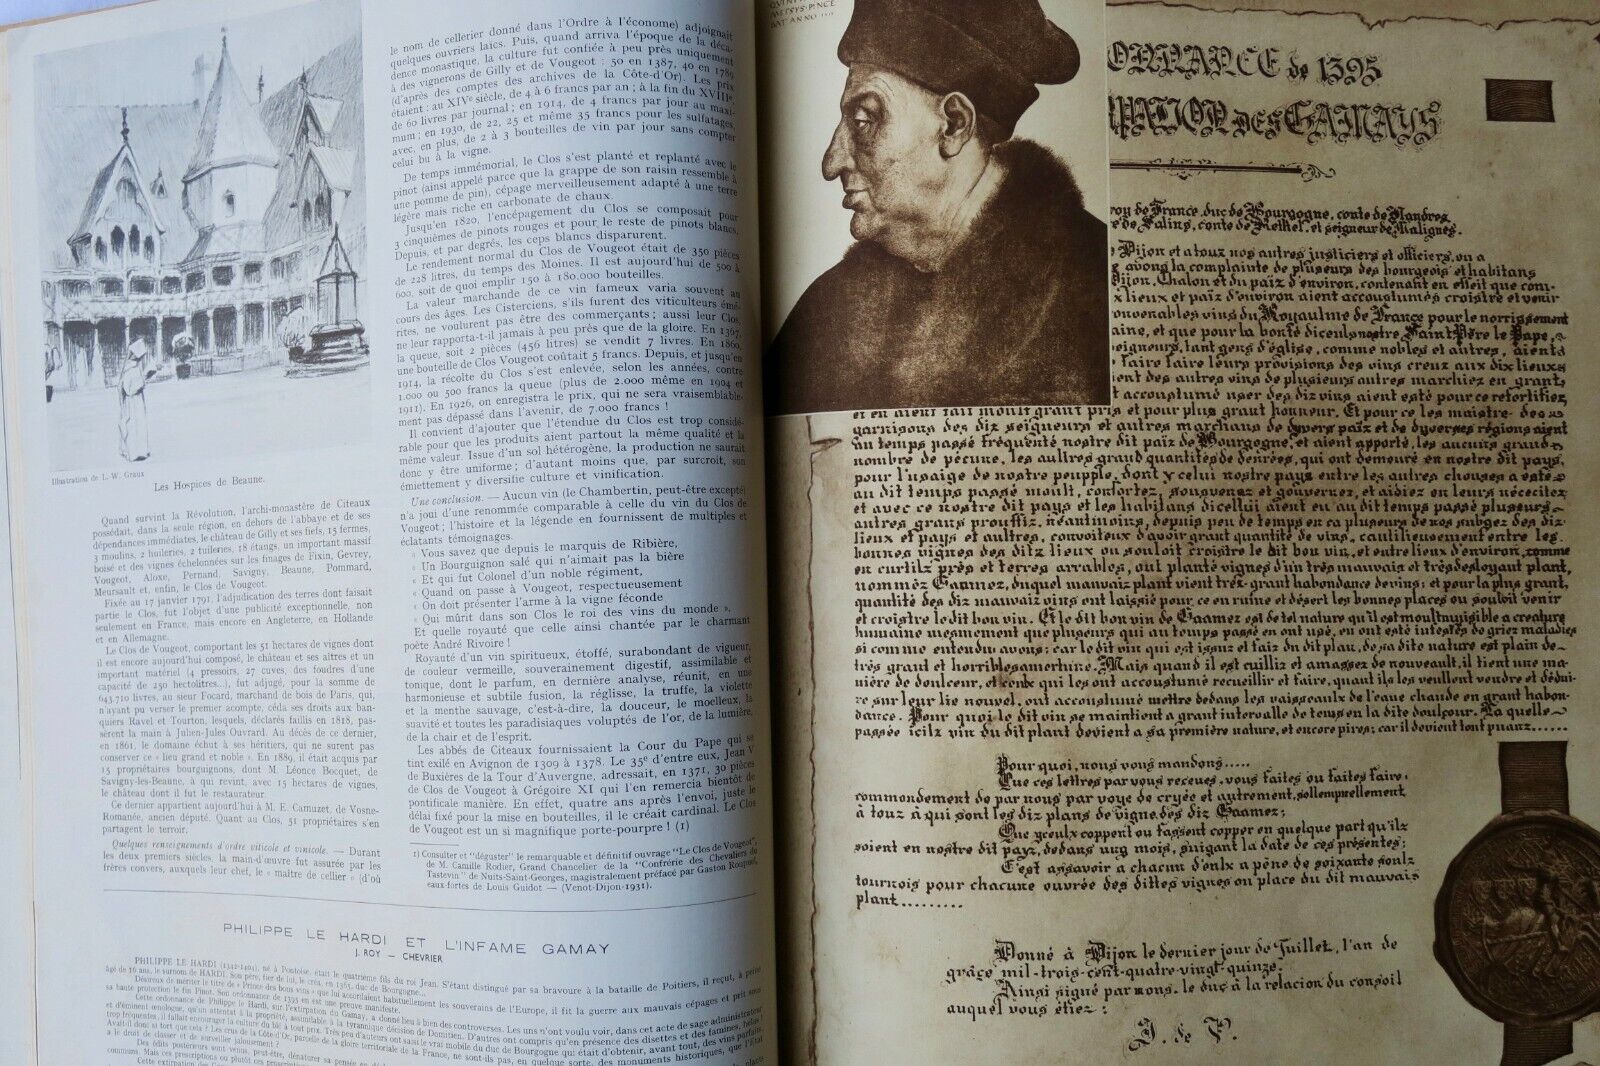 Illustration de L. W. Graux
Les Hospices de Beaune.
Quand survint la Révolution, l'archi-monastère de Citeaux
possédait, dans la seule région, en dehors de l'abbaye et de ses
dépendances immédiates, le château de Gilly et ses fiefs, 15 fermes,
3 moulins, 2 huileries, 2 tuileries, 18 étangs, un important massif
boisé et des vignes échelonnées sur les finages de Fixin, Gevrey,
Vougeot, Aloxe, Pernand, Savigny, Beaune, Pommard,
Meursault et, enfin, le Clos de Vougeot.
Fixée au 17 janvier 1791, l'adjudication des terres dont faisait
partie le Clos, fut l'objet d'une publicité exceptionnelle, non
seulement en France, mais encore en Angleterre, en Hollande
et en Allemagne.
Le Clos de Vougeot, comportant les 51 hectares de vignes dont
il est encore aujourd'hui composé, le château et ses aîtres et un
important matériel (4 pressoirs, 27 cuves, des foudres d'une
capacité de 250 hectolitres...), fut adjugé, pour la somme de
643.710 livres, au sieur Focard, marchand de bois de Paris, qui,
n'ayant pu verser le premier acompte, céda ses droits aux ban-
quiers Ravel et Tourton, lesquels, déclarés faillis en 1818, pas-
sèrent la main à Julien-Jules Ouvrard. Au décès de ce dernier,
en 1861, le domaine échut à ses héritiers, qui ne surent pas
conserver ce « lieu grand et noble ». En 1889, il était acquis par
15 propriétaires bourguignons, dont M. Léonce Bocquet, de
Savigny-les-Beaune, à qui revint, avec 15 hectares de vignes,
le château dont il fut le restaurateur.
Ce dernier appartient aujourd'hui à M. E. Camuzet, de Vosne-
Romanée, ancien député. Quant au Clos, 51 propriétaires s'en
partagent le terroir.
Quelques renseignements d'ordre viticole et vinicole. — Durant
les deux premiers siècles, la main-d'œuvre fut assurée par les
frères convers, auxquels leur chef, le « maître de cellier » (d'où
le nom de cellerier donné dans l'Ordre à l'économe) adjoignait
quelques ouvriers laïcs. Puis, quand arriva l'époque de la déca-
dence monastique, la culture fut confiée à peu près uniquement
à des vignerons de Gilly et de Vougeot : 50 en 1387, 40 en 1789
(d'après des comptes des archives de la Côte-d'Or). Les prix
étaient : au XIVe siècle, de 4 à 6 francs par an ; à la fin du XVIIIe,
de 60 livres par journal ; en 1914, de 4 francs par jour au maxi-
mum ; en 1930, de 22, 25 et même 35 francs pour les sulfatages,
avec, en plus, de 2 à 3 bouteilles de vin par jour sans compter
celui bu à la vigne.
De temps immémorial, le Clos s'est planté et replanté avec le
pinot (ainsi appelé parce que la grappe de son raisin ressemble à
une pomme de pin), cépage merveilleusement adapté à une terre
légère mais riche en carbonate de chaux.
Jusqu'en 1820, l'encépagement du Clos se composait pour
3 cinquièmes de pinots rouges et pour le reste de pinots blancs.
Depuis, et par degrés, les ceps blancs disparurent.
Le rendement normal du Clos de Vougeot était de 350 pièces
de 228 litres, du temps des Moines. Il est aujourd'hui de 500 à
600, soit de quoi emplir 150 à 180.000 bouteilles.
La valeur marchande de ce vin fameux varia souvent au
cours des âges. Les Cisterciens, s'ils furent des viticulteurs émé-
rites, ne voulurent pas être des commerçants ; aussi leur Clos
ne leur rapporta-t-il jamais à peu près que de la gloire. En 1367,
la queue, soit 2 pièces (456 litres) se vendit 7 livres. En 1860,
une bouteille de Clos Vougeot coûtait 5 francs. Depuis, et jusqu'en
1914, la récolte du Clos s'est enlevée, selon les années, contre
1.000 ou 500 francs la queue (plus de 2.000 même en 1904 et
1911). En 1926, on enregistra le prix, qui ne sera vraisemblable-
ment pas dépassé dans l'avenir, de 7.000 francs !
Il convient d'ajouter que l'étendue du Clos est trop considé-
rable pour que les produits aient partout la même qualité et la
même valeur. Issue d'un sol hétérogène, la production ne saurait
donc y être uniforme ; d'autant moins que, par surcroît, son
émiettement y diversifie culture et vinification.
Une conclusion. — Aucun vin (le Chambertin, peut-être excepté)
n'a joui d'une renommée comparable à celle du vin du Clos de
Vougeot ; l'histoire et la légende en fournissent de multiples et
éclatants témoignages.
« Vous savez que depuis le marquis de Ribière,
« Un Bourguignon salé qui n'aimait pas la bière
« Et qui fut Colonel d'un noble régiment,
« Quand on passe à Vougeot, respectueusement
« On doit présenter l'arme à la vigne féconde
« Qui mûrit dans son Clos le roi des vins du monde »,
Et quelle royauté que celle ainsi chantée par le charmant
poète André Rivoire !
Royauté d'un vin spiritueux, étoffé, surabondant de vigueur,
de couleur vermeille, souverainement digestif, assimilable et
tonique, dont le parfum, en dernière analyse, réunit, en une
harmonieuse et subtile fusion, la réglisse, la truffe, la violette
et la menthe sauvage, c'est-à-dire, la douceur, le moelleux, la
suavité et toutes les paradisiaques voluptés de l'or, de la lumière,
de la chair et de l'esprit.
Les abbés de Citeaux fournissaient la Cour du Pape qui se
tint exilé en Avignon de 1309 à 1378. Le 35e d'entre eux, Jean V
de Buxières de la Tour d'Auvergne, adressait, en 1371, 30 pièces
de Clos de Vougeot à Grégoire XI qui l'en remercia bientôt de
pontificale manière. En effet, quatre ans après l'envoi, juste le
délai fixé pour la mise en bouteilles, il le créait cardinal. Le Clos
de Vougeot est un si magnifique porte-pourpre ! (1)
1) Consulter et "déguster" le remarquable et définitif ouvrage "Le Clos de Vougeot",
de M. Camille Rodier, Grand Chancelier de la "Confrérie des Chevaliers du
Tastevin" de Nuits-Saint-Georges, magistralement préfacé par Gaston Roupnel,
eaux-fortes de Louis Guidot — (Venot-Dijon-1931).
PHILIPPE LE HARDI ET L'INFAME GAMAY
J. ROY - CHEVRIER
PHILIPPE LE HARDI (1342-1404), né à Pontoise, était le quatrième fils du roi Jean. S'étant distingué par sa bravoure à la bataille de Poitiers, il reçut, à peine
âgé de 16 ans, le surnom de HARDI. Son père, fier de lui, le créa, en 1363, duc de Bourgogne...
Désireux de mériter le titre de « Prince des bons vins » que lui accordaient habituellement les souverains de l'Europe, il fit la guerre aux mauvais cépages et prit sous
sa haute protection le fin Pinot. Son ordonnance de 1395 en est une preuve manifeste.
Cette ordonnance de Philippe le Hardi, sur l'extirpation du Gamay, a donné lieu à bien des controverses. Les uns n'ont voulu voir, dans cet acte de sage administrateur
et d'éminent œnologue, qu'un attentat à la propriété, assimilable à la tyrannique décision de Domitien. D'autres ont compris qu'en présence des disettes et des famines, hélas !
trop fréquentes, il fallait encourager la culture du blé à tout prix. Très peu d'auteurs ont saisi le vrai mobile du duc de Bourgogne qui était d'obtenir, avant tout, des vins parfaits.
Avait-il donc si tort que cela ? Les crus de la Côte-d'Or, parcelle de la gloire territoriale de la France, ne sont-ils pas, en quelque sorte, des monuments historiques, que l'Etat
a le droit de classer et de surveiller jalousement ?
ORDONNANCE de 1395
DES GAMAYS
roy de France, duc de Bourgogne, conte de Flandres
de Salins, conte de Rethel, et seigneur de Malignes.
Dijon et a touz nos autres justiciers et officiers, ou a
avons la complainte de pluseurs des bourgeois et habitans
Dijon, Chalon et du païz d'environ, contenant en effeit que com-
lieux et païz d'environ aient accoustumés croistre et venir
onvenables vins du Royaulme de France pour le norrissement
aine, et que pour la bonté diceulx nostre Saint Père le Pape,
eigneurs, tant gens d'église, comme nobles et autres, aient
faire faire leurs provisions des vins creuz aux diz lieux
ent des autres vins de plusieurs autres marchiez en grant,
accoustumé user des diz vins aient esté pour ce refortifiez,
et en aient fait moult grant pris et pour plus grant honneur. Et pour ce les maistre- des
garnisons des diz seigneurs et autres marchans de dyvers païz et de dyverses régions aient
au temps passé fréquenté nostre dit païz de Bourgogne, et aient apporté, les aucuns grand
nombre de pécune, les aultres grand quantités de denrées, qui ont demeuré en nostre dit pays,
pour l'usaige de nostre peupple, dont y celui nostre pays entre les autres chouses a esté
au dit temps passé moult, confortez, souvenez et gouvernez, et aidiez en leurs nécecitez
et avec ce nostre dit pays et les habitans dicellui aient eu au dit temps passé pluseurs
autres grans prouffiz, néantmoins, depuis peu de temps en ca pluseurs de nos subgez des diz
lieux et pays et aultres, convoiteux d'avoir grant quantité de vins, cautilieusement entre les
bonnes vignes des ditz lieux ou souloit croistre le dit bon vin, et entre lieux d'environ, comme
en curtilz près et terres arrables, ont planté vignes d'un très mauvais et très desloyant plant,
nommez Gaamez, duquel mauvaiz plant vient très-grant habondance de vins; et pour la plus grant,
quantité des diz mauvaiz vins ont laissié pour ce en ruine et désert les bonnes places ou souloit venir
et croistre le dit bon vin. Et le dit bon vin de Gaamez est de tel nature qu'il est moult nuysible a creature
humaine mesmement que pluseurs qui au temps passé en ont usé, en ont esté infestés de griez maladies
si comme entendu avons; car le dit vin qui est yssuz et faiz du dit plan, de sa dite nature est plain de-
très grant et horrible samertine. Mais quand il est cuilliz et amassez de nouveault, il tient une ma-
nière de doulceur, et ceulx qui les ont accoustumé recueillir et faire, quant ils les veullent vendre et dédui-
re sur leur lie nouvel, ont accoustumé mettre dedans les vaisseaulx de l'eaue chaude en grant habon-
dance. Pour quoi le dit vin se maintient a grant intervalle de temps en la dite doulçour. La quelle-
passée icilz vin du dit plant devient a sa première nature, et encore pires; car il devient tout puanz......
Pour quoi, nous vous mandons.....
Que ces lettres par vous receues, vous faites ou faites faire,
commandement de par nous par voye de cryée et autrement, sollempnellement,
à touz à qui sont les diz plans de vigne, des diz Gaamez;
Que yceulx coppent ou fassent copper en quelque part qu'ilz
soient en nostre dit payz, dedans ung mois, suigant la date de ces présentes;
C'est assavoir a chacun d'eulx a pêne de soixante soulz
tournois pour chacune ouvrée des dittes vignes ou place du dit mauvais
plant.........
Donné à Dijon le dernier jour de Juillet, l'an de
grâce mil-trois-cent-quatre-vingt-quinze.
Ainsi signé par mons. le duc à la relacion du consoil
auquel vous étiez:
J. de V.